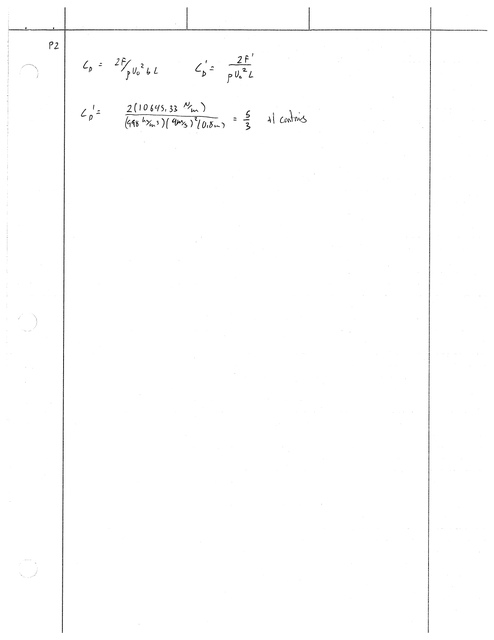 P2
C_D = 2F/ρU₀²bL C_D' = 2F'/ρU₀²L
C_D' = 2(10645,33 N/m)/(998 kg/m³)(4m/s)²(0,8m) = 5/3